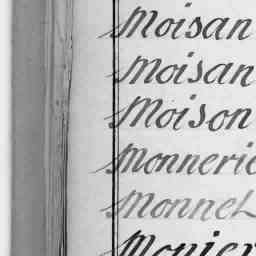 Moisan
Moisan
Moison
Monnerie
Monnet
Monier